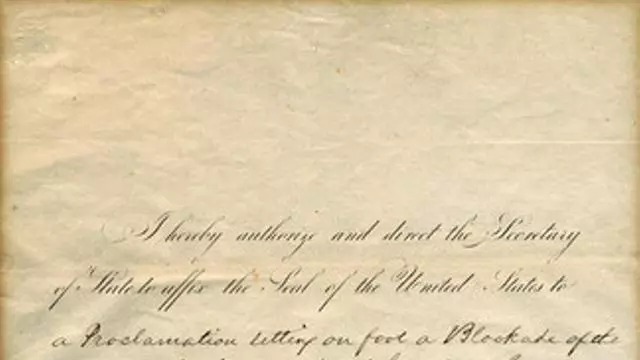 I hereby authorize and direct the Secretary
of State to affix the Seal of the United States to
a Proclamation setting on foot a Blockade of the